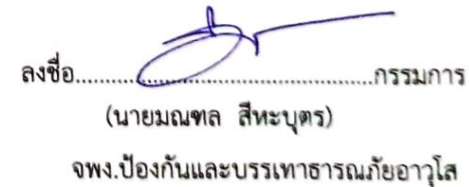 ลงชื่อ....................................................กรรมการ
(นายมณฑล สีหะบุตร)
จพง.ป้องกันและบรรเทาธารณภัยอาวุโส